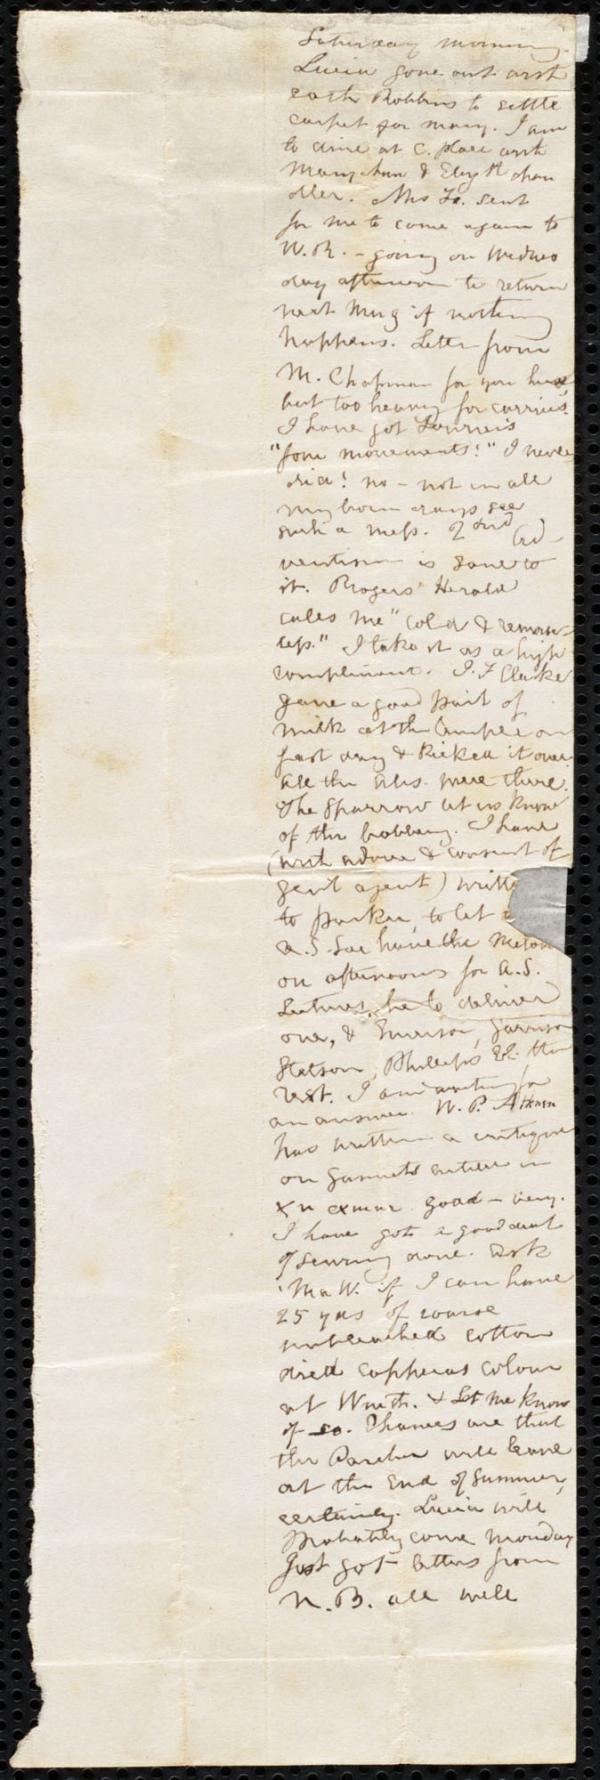 Saturday morning.
Lucia gone out with
Robbins to settle
carpet for mary. I am
to dine at C. place with
Mary Ann & Eliz th chan
dler. Mrs Fo. sent
for me to come again to
W. R. - going on Wednes
day afternoon to return
next Mng if nothing
happens. Letter from
M. Chapman for you here
but too heavy for carriers.
I have got
"four movements!" I never
did! no - not in all
my born days see
such a mess. 2ond Ad
ventism is sane to
it. Rogers' Herald
calls me "cold & remorse-
less." I take it as a high
compliment. J. F Clarke
gave a good pail of
milk at the Temple on
fast day & kicked it over.
All the Abs. were there.
The Sparrow let us know
of the bobbery. I have
(with advice & consent of
gen'l agent) writt
to Parker, to let
A. S. Soc have the Melod
on afternoons for A. S.
Lectures, he to deliver
one, & Emerson, Garrison
Stetson, Phillips &c. the
rest. I am waiting for
an answer. W. P. Atkinson
has written a critique
on Gannett's article in
Xn exmnr. good - very.
I have got a good deal
of sewing done. Ask
Ma W. if I can have
25 yds of coarse
unbleached cotton
died copperas colour
at Wmth. & Let me know
if so. Chances are that
the Parcher will leave
at the End of Summer,
certainly. Lucia will
probably come monday
Just got letters from
N. B. all well